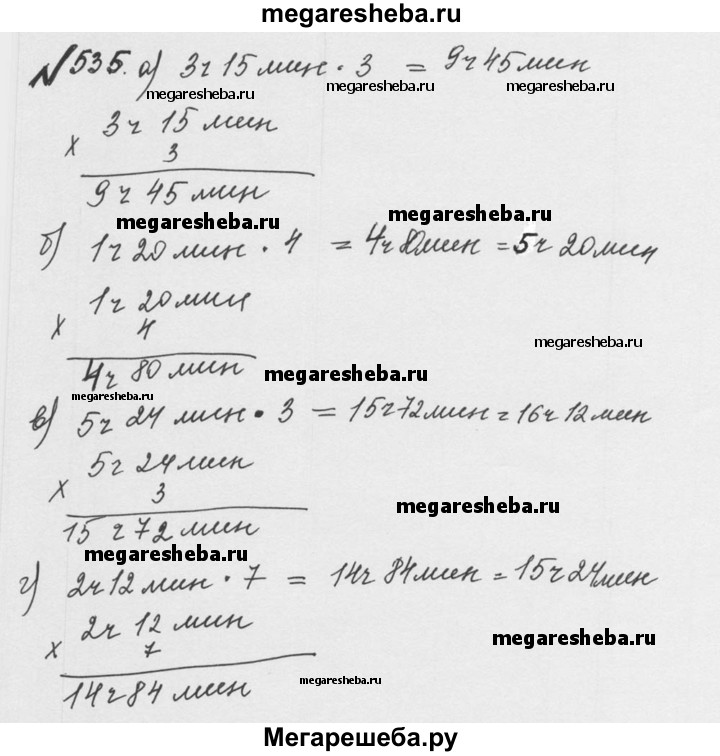 megaresheba.ru
№535. а) 3ч 15 мин · 3 = 9ч 45 мин
megaresheba.ru megaresheba.ru megaresheba.ru
3ч 15 мин
х 3
9 ч 45 мин
megaresheba.ru megaresheba.ru
б) 1ч 20 мин · 4 = 4ч 80 мин = 5ч 20 мин
1ч 20 мин
х 4
megaresheba.ru
4ч 80 мин
megaresheba.ru
megaresheba.ru
в) 5ч 24 мин · 3 = 15ч 72 мин = 16ч 12 мин
5ч 24 мин
х 3
megaresheba.ru
15 ч 72 мин
megaresheba.ru
г) 2ч 12 мин · 7 = 14ч 84 мин = 15ч 24 мин
2ч 12 мин
х 7
megaresheba.ru
14ч 84 мин
megaresheba.ru
Мегарешеба.ру